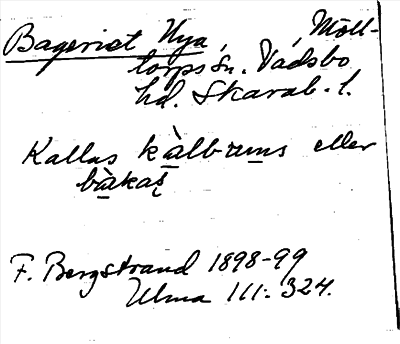 Bageriet Nya, Möll-
torps sn. Vadsbo
hd. Skarab. l.
Kallas kàlbruns eller
bàkaṣ
F. Bergstrand 1898-99
Ulma 111:324.